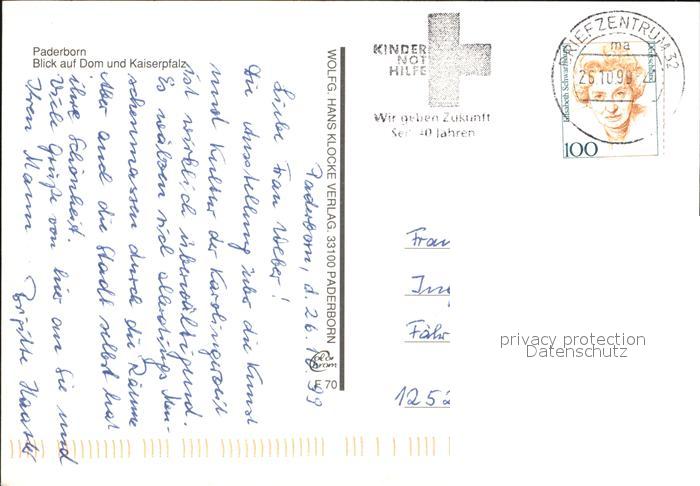 Paderborn
Blick auf Dom und Kaiserpfalz
Paderborn, d. 26.10.99
Liebe Frau Weber!
Die Ausstellung über die Kunst
und Kultur der Karolingerzeit
ist wirklich überwältigend.
Es wälzen sich allerdings Men-
schenmassen durch die Räume
Aber auch die Stadt selbst hat
ihre Schönheit.
Viele Grüße von hier an Sie und
Ihren Mann
Brigitte
WOLFG. HANS KLOCKE VERLAG, 33100 PADERBORN
F 70
KINDER
NOT
HILFE
Wir geben Zukunft
Seit 40 Jahren
BRIEFZENTRUM 32
ma
26.10.99
Elisabeth Schwarzhaupt
100
Frau
Fähr
125
privacy protection
Datenschutz